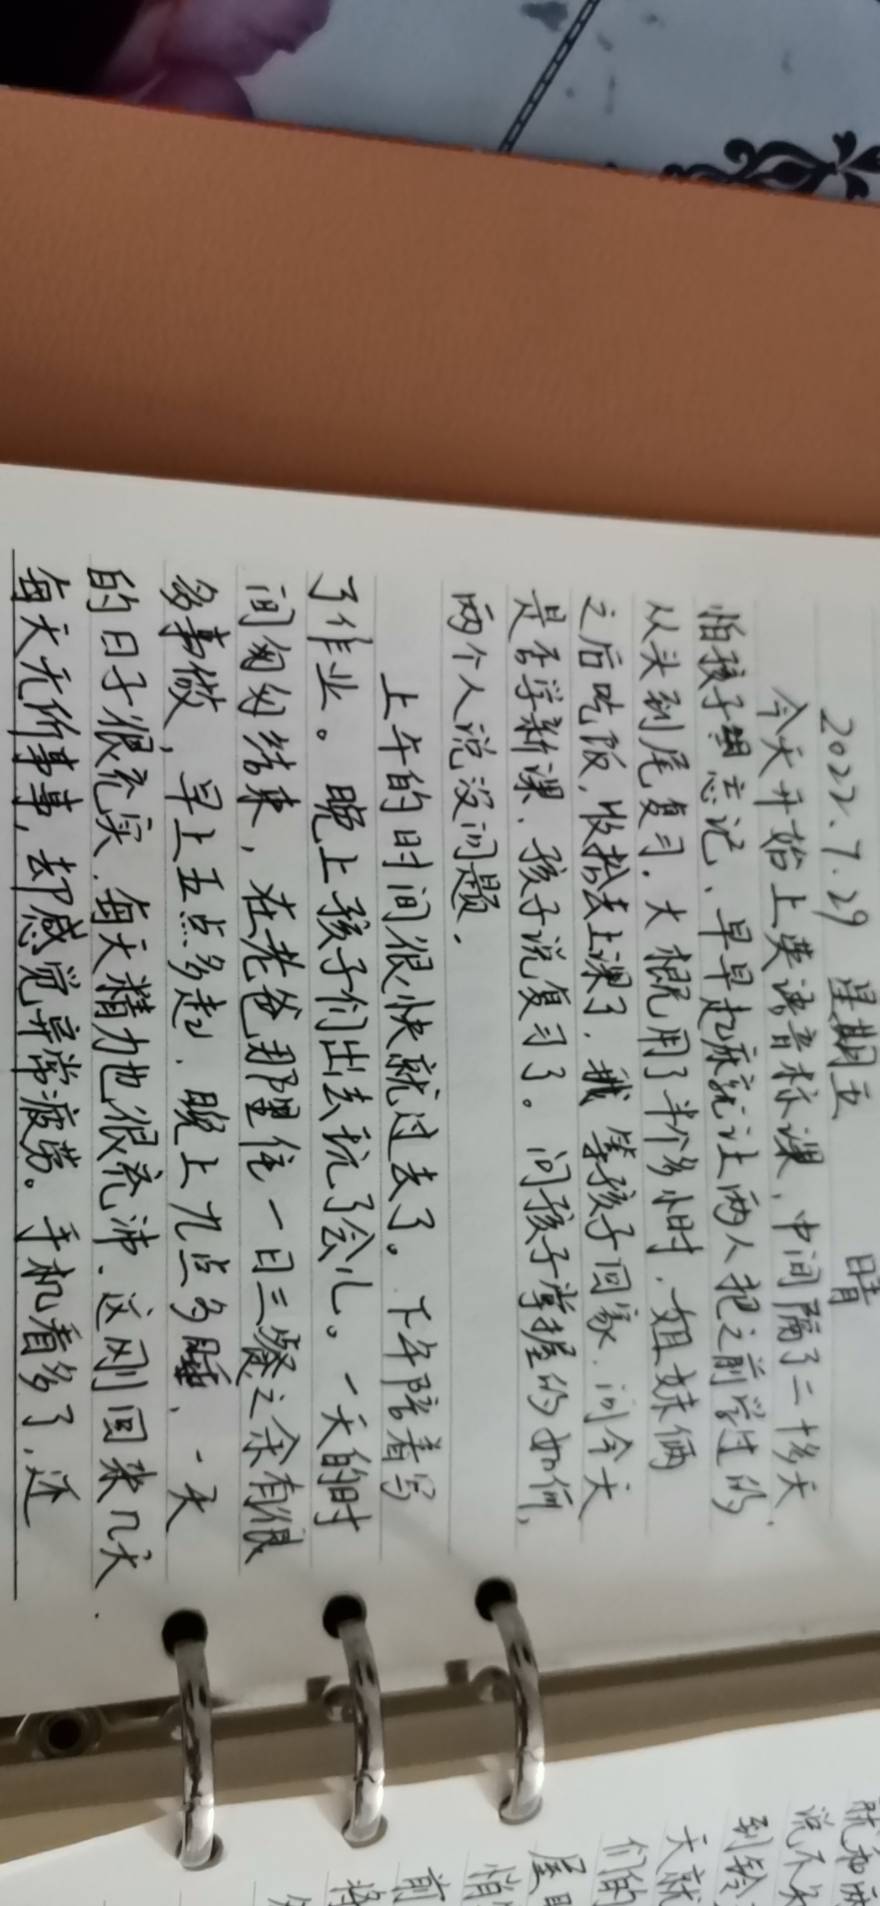 2022.7.29 星期五 晴
今天开始上英语音标课，中间隔了二十多天，
怕孩子忘记，早早起床就让两人把之前学过的
从头到尾复习，大概用了半个多小时，姐妹俩
之后吃饭，收拾去上课了，我等孩子回家，问今天
是否学新课，孩子说复习了。问孩子掌握的如何，
两个人说没问题，
上午的时间很快就过去了。下午陪着写
了作业。晚上孩子们出去玩了会儿。一天的时
间匆匆结束，在老爸那里住一日三餐之余有很
多事做，早上五点多起，晚上九点多睡，一天
的日子很充实，每天精力也很充沛，这刚回来几天，
每天无所事事，却感觉异常疲劳。手机看多了，还
说不
到
天就
们的
尾
悄
前
将